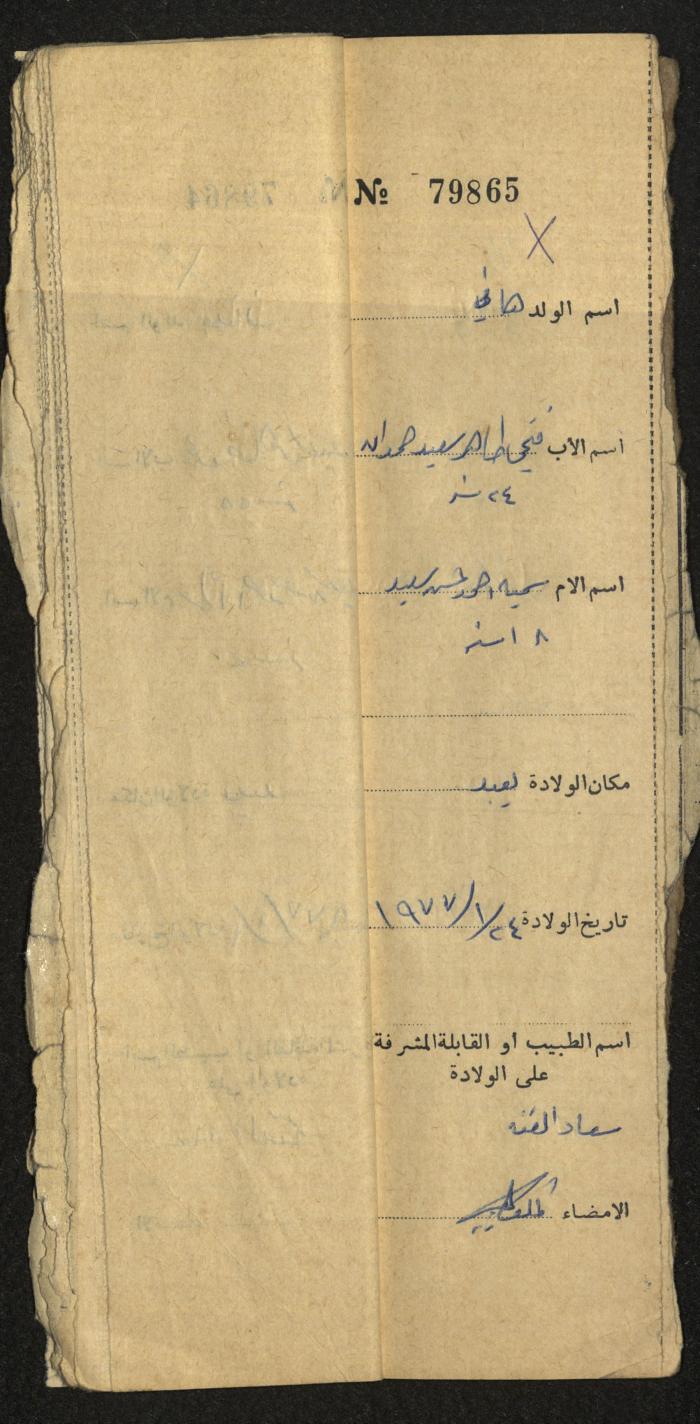 № 79865
اسم الولد هاني
اسم الأب فتحي طاهر سعيد حمدالله
٢٤ سنه
اسم الام سميه احمد حسن سعيد
١٨ سنه
مكان الولادة يعبد
تاريخ الولادة ٢٤/١/١٩٧٧
اسم الطبيب أو القابلة المشرفة
على الولادة
سعاد
الامضاء